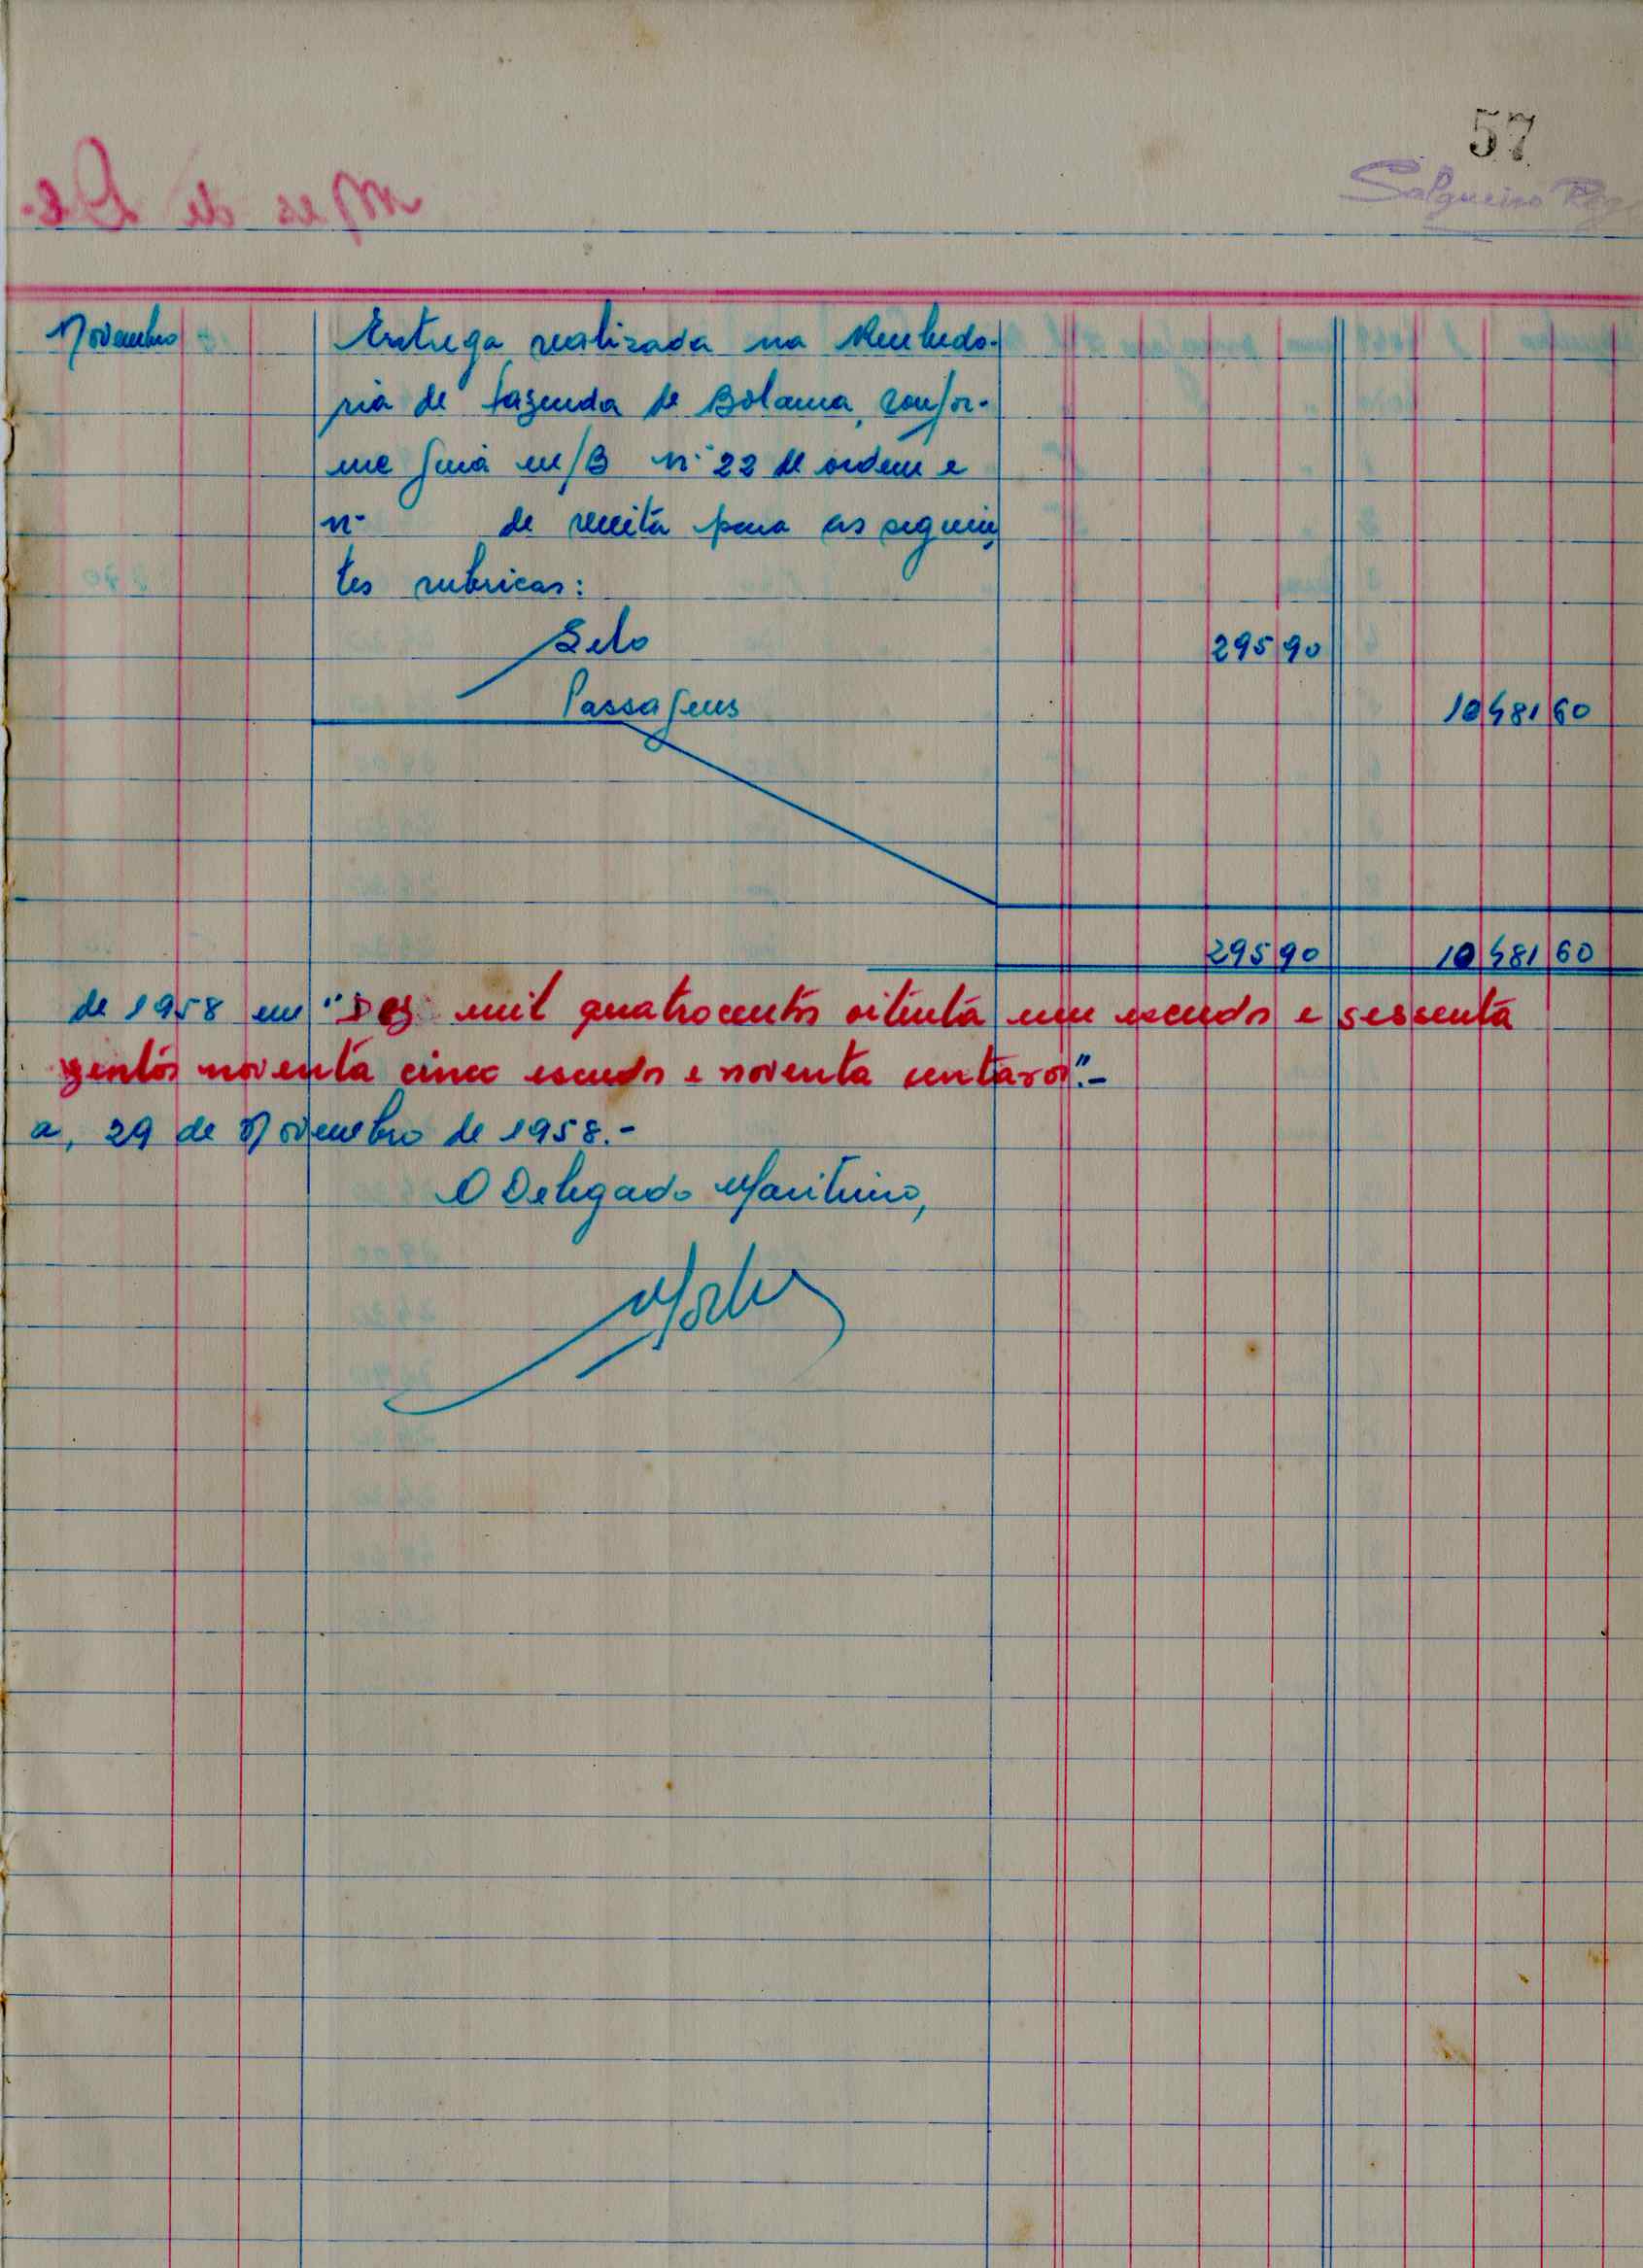 57
Salgueiro
Novembro Entrega realizada na Recebedo-
ria de fazenda de Bolama, confor-
me guia m/B nº 22 de ordem e
nº de receita para as seguin
tes rubricas:
Selo 295 90
Passagens 10 481 60
295 90 10 481 60
de 1958 em "Dez mil quatrocentos oitenta um escudos e sessenta
zentos noventa cinco escudos e noventa centavos".-
a, 29 de Novembro de 1958.-
O Delegado Maritimo,